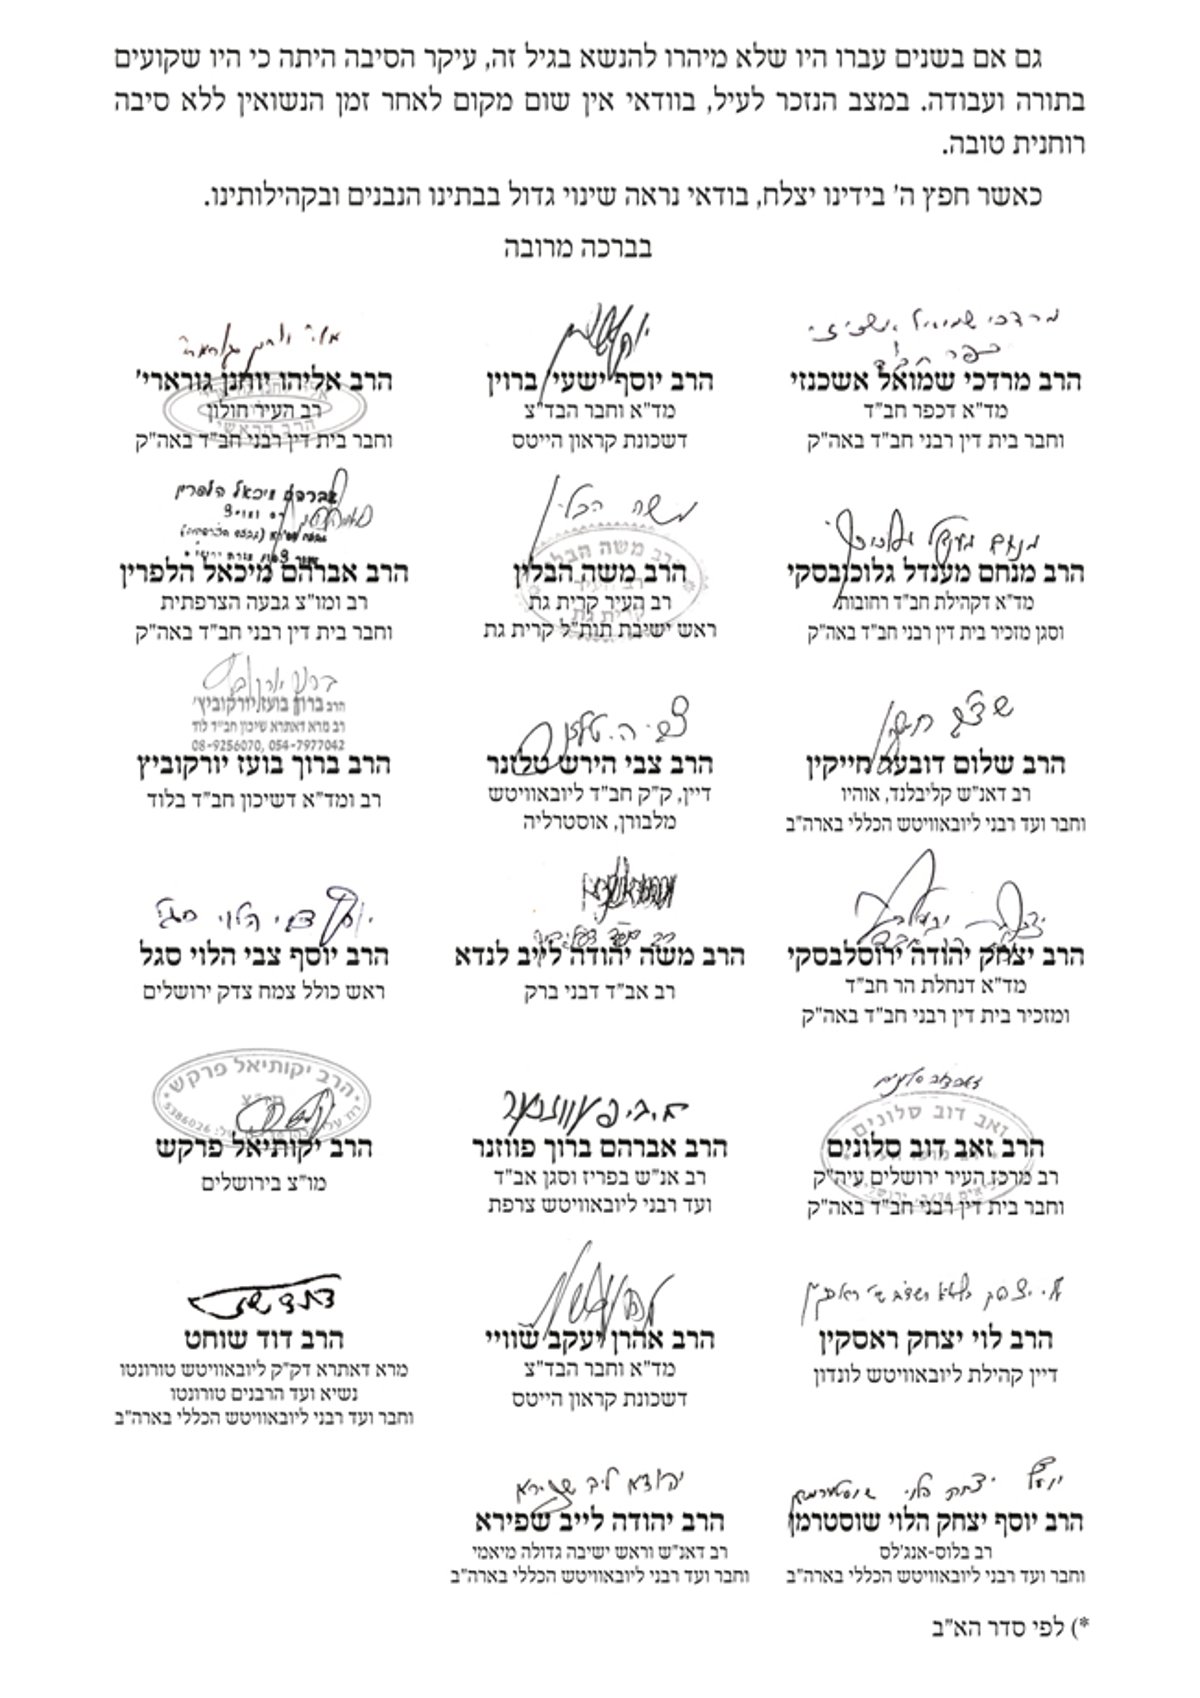 גם אם בשנים עברו היו שלא מיהרו להנשא בגיל זה, עיקר הסיבה היתה כי היו שקועים
בתורה ועבודה. במצב הנזכר לעיל, בוודאי אין שום מקום לאחר זמן הנשואין ללא סיבה
רוחנית טובה.
כאשר חפץ ה' בידינו יצלח, בודאי נראה שינוי גדול בבתינו הנבנים ובקהילותינו.
בברכה מרובה
הרב מרדכי שמואל אשכנזי
מד"א דכפר חב"ד
וחבר בית דין רבני חב"ד באה"ק
הרב יוסף ישעי' ברוין
מד"א וחבר הבד"צ
דשכונת קראון הייטס
הרב אליהו יוחנן גורארי'
רב העיר חולון
וחבר בית דין רבני חב"ד באה"ק
הרב מנחם מענדל גלוכובסקי
מד"א דקהילת חב"ד רחובות
וסגן מזכיר בית דין רבני חב"ד באה"ק
משה הבלין
הרב משה הבלין
רב העיר קרית גת
ראש ישיבת תות"ל קרית גת
אברהם מיכאל הלפרין
הרב אברהם מיכאל הלפרין
רב ומו"צ גבעה הצרפתית
וחבר בית דין רבני חב"ד באה"ק
הרב שלום דובער חייקין
רב דאנ"ש קליבלנד, אוהיו
וחבר ועד רבני ליובאוויטש הכללי בארה"ב
הרב צבי הירש טלזנר
דיין, ק"ק חב"ד ליובאוויטש
מלבורן, אוסטרליה
הרב ברוך בועז יורקוביץ'
רב מרא דאתרא שיכון חב"ד לוד
08-9256070, 054-7977042
הרב ברוך בועז יורקוביץ
רב ומד"א דשיכון חב"ד בלוד
הרב יצחק יהודה ירוסלבסקי
מד"א דנחלת הר חב"ד
ומזכיר בית דין רבני חב"ד באה"ק
הרב משה יהודה לייב לנדא
רב אב"ד דבני ברק
יוסף צבי הלוי סגל
הרב יוסף צבי הלוי סגל
ראש כולל צמח צדק ירושלים
זאב דוב סלונים
הרב זאב דוב סלונים
רב מרכז העיר ירושלים עיה"ק
וחבר בית דין רבני חב"ד באה"ק
הרב אברהם ברוך פווזנר
רב אנ"ש בפריז וסגן אב"ד
ועד רבני ליובאוויטש צרפת
הרב יקותיאל פרקש
הרב יקותיאל פרקש
מו"צ בירושלים
הרב לוי יצחק ראסקין
דיין קהילת ליובאוויטש לונדון
הרב אהרן יעקב שוויי
מד"א וחבר הבד"צ
דשכונת קראון הייטס
הרב דוד שוחט
מרא דאתרא דק"ק ליובאוויטש טורונטו
נשיא ועד הרבנים טורונטו
וחבר ועד רבני ליובאוויטש הכללי בארה"ב
הרב יוסף יצחק הלוי שוסטרמן
רב בלוס-אנג'לס
וחבר ועד רבני ליובאוויטש הכללי בארה"ב
יהודא ליב שפירא
הרב יהודה לייב שפירא
רב דאנ"ש וראש ישיבה גדולה מיאמי
וחבר ועד רבני ליובאוויטש הכללי בארה"ב
*) לפי סדר הא"ב